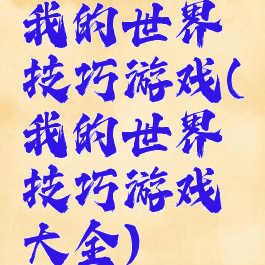 我的世界
技巧游戏(
我的世界
技巧游戏
大全)